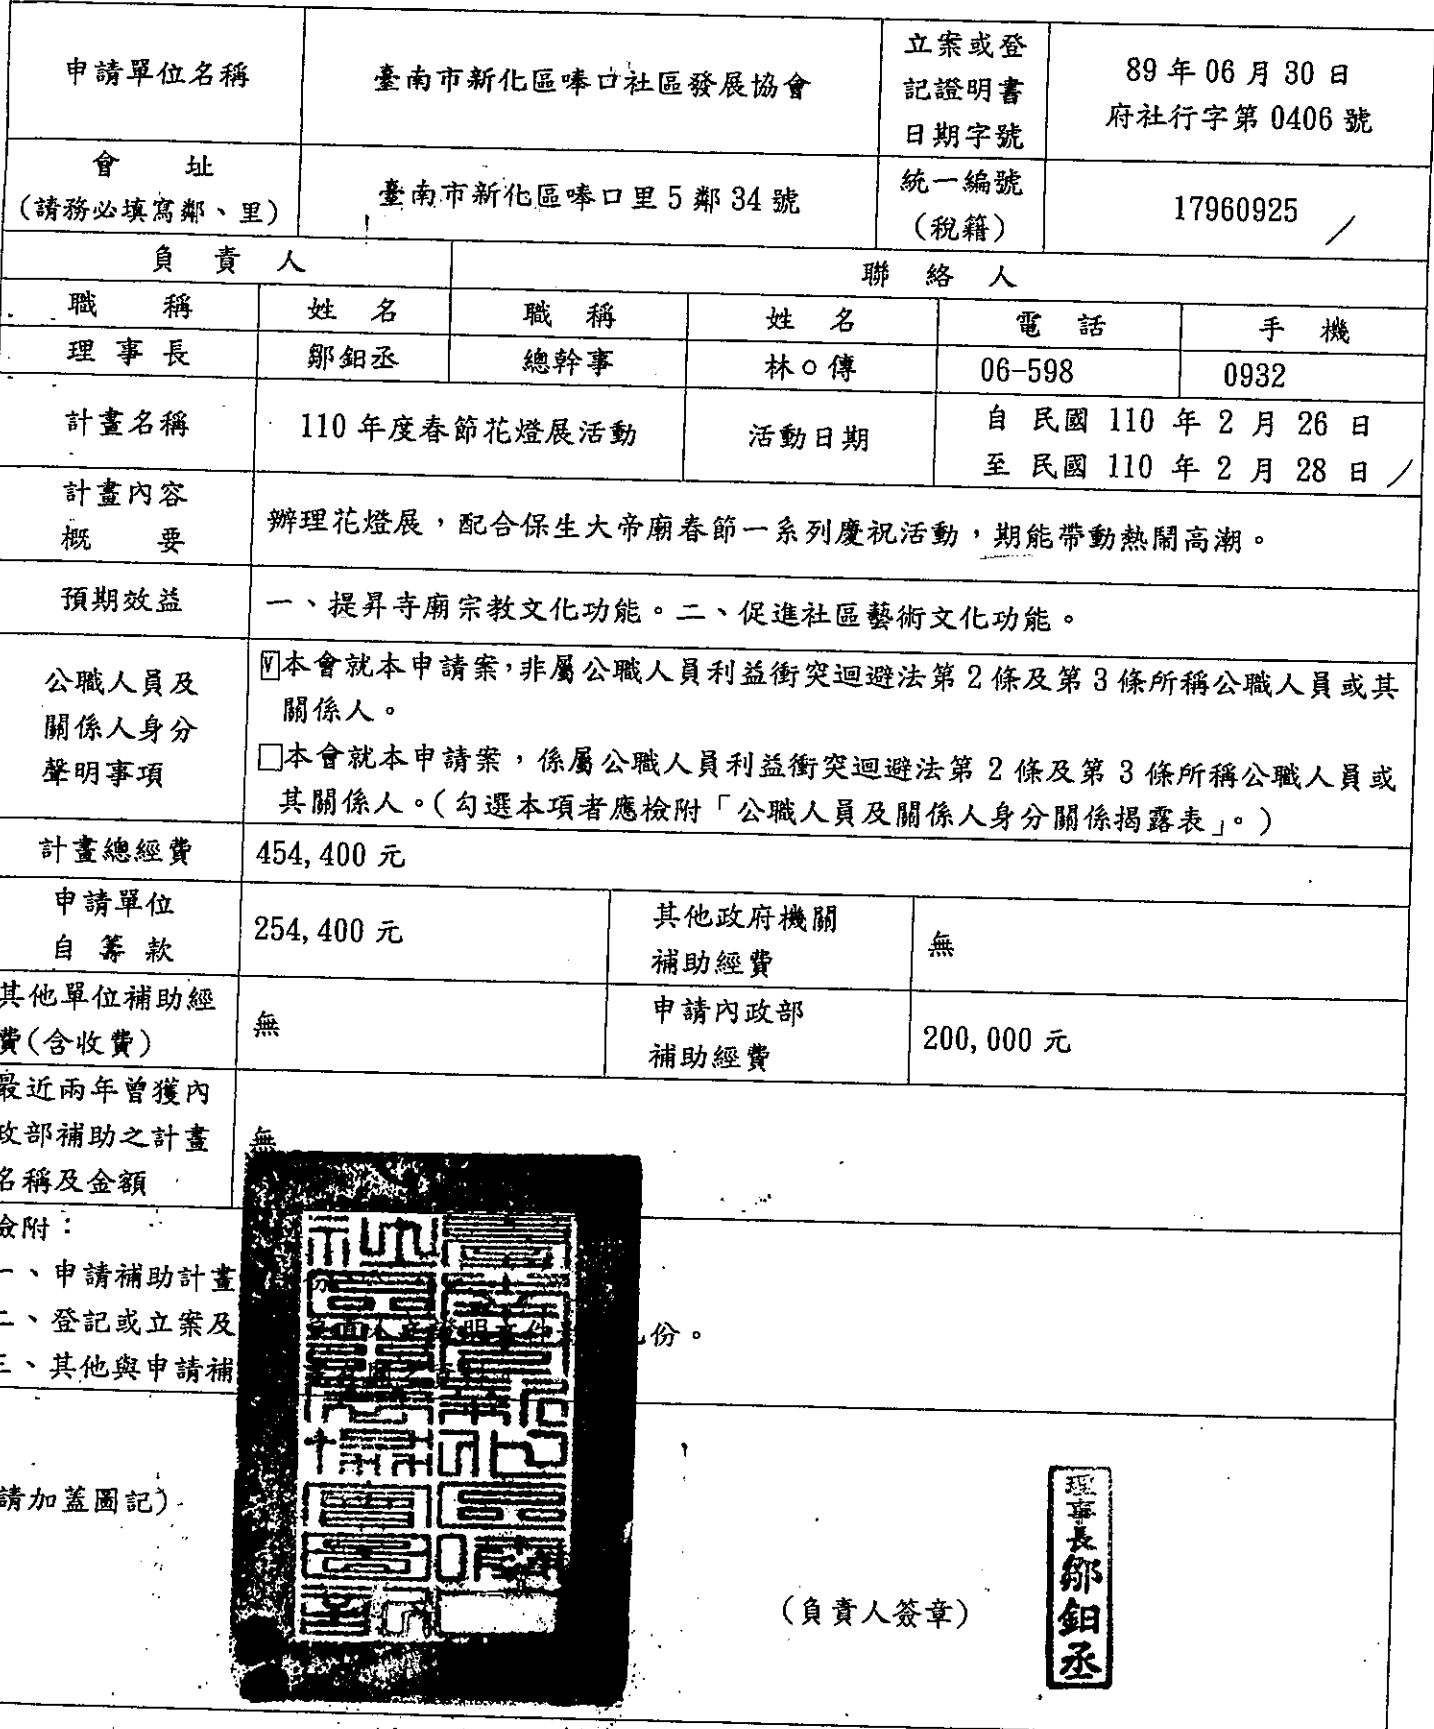 申請單位名稱
臺南市新化區唪口社區發展協會
立案或登
記證明書
日期字號
89 年 06 月 30 日
府社行字第 0406 號
會 址
(請務必填寫鄰、里)
臺南市新化區唪口里 5 鄰 34 號
統一編號
(稅籍)
17960925
負 責 人
聯 絡 人
職 稱
姓 名
職 稱
姓 名
電 話
手 機
理 事 長
鄒鈤丞
總幹事
林○傳
06-598
0932
計畫名稱
110 年度春節花燈展活動
活動日期
自 民國 110 年 2 月 26 日
至 民國 110 年 2 月 28 日
計畫內容
概 要
辦理花燈展,配合保生大帝廟春節一系列慶祝活動,期能帶動熱鬧高潮。
預期效益
一、提昇寺廟宗教文化功能。二、促進社區藝術文化功能。
公職人員及
關係人身分
聲明事項
☑本會就本申請案,非屬公職人員利益衝突迴避法第 2 條及第 3 條所稱公職人員或其
關係人。
□本會就本申請案,係屬公職人員利益衝突迴避法第 2 條及第 3 條所稱公職人員或
其關係人。(勾選本項者應檢附「公職人員及關係人身分關係揭露表」。)
計畫總經費
454,400 元
申請單位
自 籌 款
254,400 元
其他政府機關
補助經費
無
其他單位補助經
費(含收費)
無
申請內政部
補助經費
200,000 元
最近兩年曾獲內
政部補助之計畫
名稱及金額
無
檢附:
一、申請補助計畫
二、登記或立案及
份。
三、其他與申請補
請加蓋圖記)
(負責人簽章)
理事長鄒鈤丞